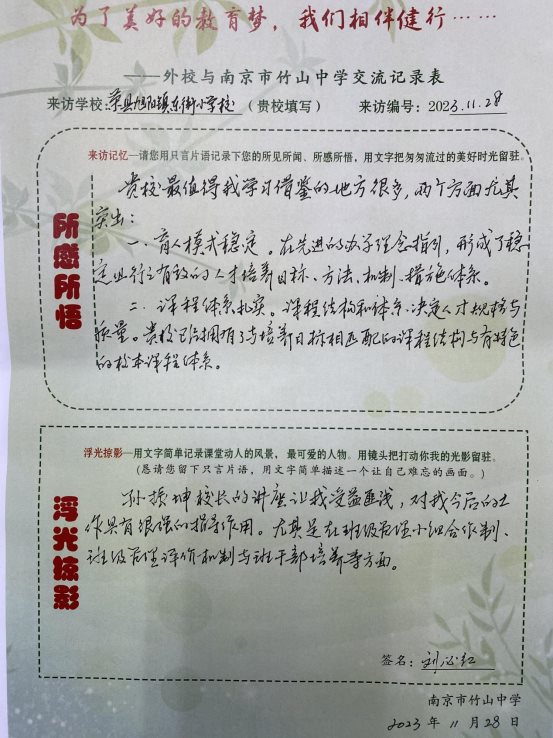 为了美好的教育梦，我们相伴健行……
——外校与南京市竹山中学交流记录表
来访学校:荣县旭阳镇东街小学校（贵校填写） 来访编号: 2023.11.28
来访记忆—请您用只言片语记录下您的所见所闻、所感所悟，用文字把匆匆流过的美好时光留驻。
所感所悟
贵校最值得我学习借鉴的地方很多，两个方面尤其
突出：
一、育人模式稳定。在先进的办学理念指引，形成了稳
定且行之有效的人才培养目标、方法、机制、措施体系。
二、课程体系扎实。课程结构和体系决定人才规格与
质量。贵校已经拥有了与培养目标相匹配的课程结构与有特色
的校本课程体系。
浮光掠影—用文字简单记录课堂动人的风景，最可爱的人物。用镜头把打动你我的光影留驻。
（恳请您留下只言片语，用文字简单描述一个让自己难忘的画面。）
浮光掠影
孙振坤校长的讲座让我受益匪浅，对我今后的工
作具有很强的指导作用。尤其是在班级管理小组合作制、
班级管理评价机制与班干部培养等方面。
签名：刘沁红
南京市竹山中学
2023 年 11 月 28 日